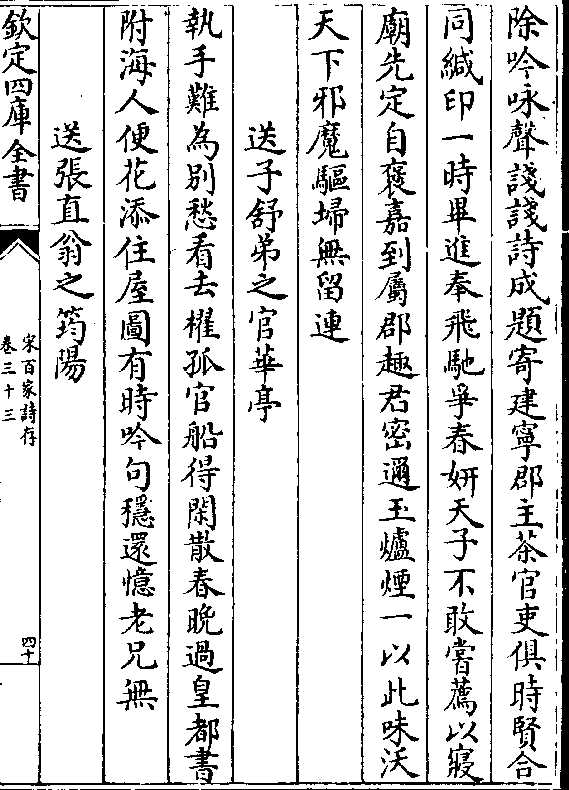 除吟咏聲諓諓詩成題寄建寧郡主茶官吏俱時賢合
同緘印一時畢進奉飛馳爭春妍天子不敢嘗薦以寢
廟先定自褒嘉到屬郡趣君密邇玉爐煙一以此味沃
天下邪魔驅埽無留連
送子舒弟之官華亭
執手難為別愁看去櫂孤官船得閑散春晚過皇都書
附海人便花添住屋圖有時吟句穩還憶老兄無
送張直翁之筠陽
欽定四庫全書
宋百家詩存
卷三十三
四十